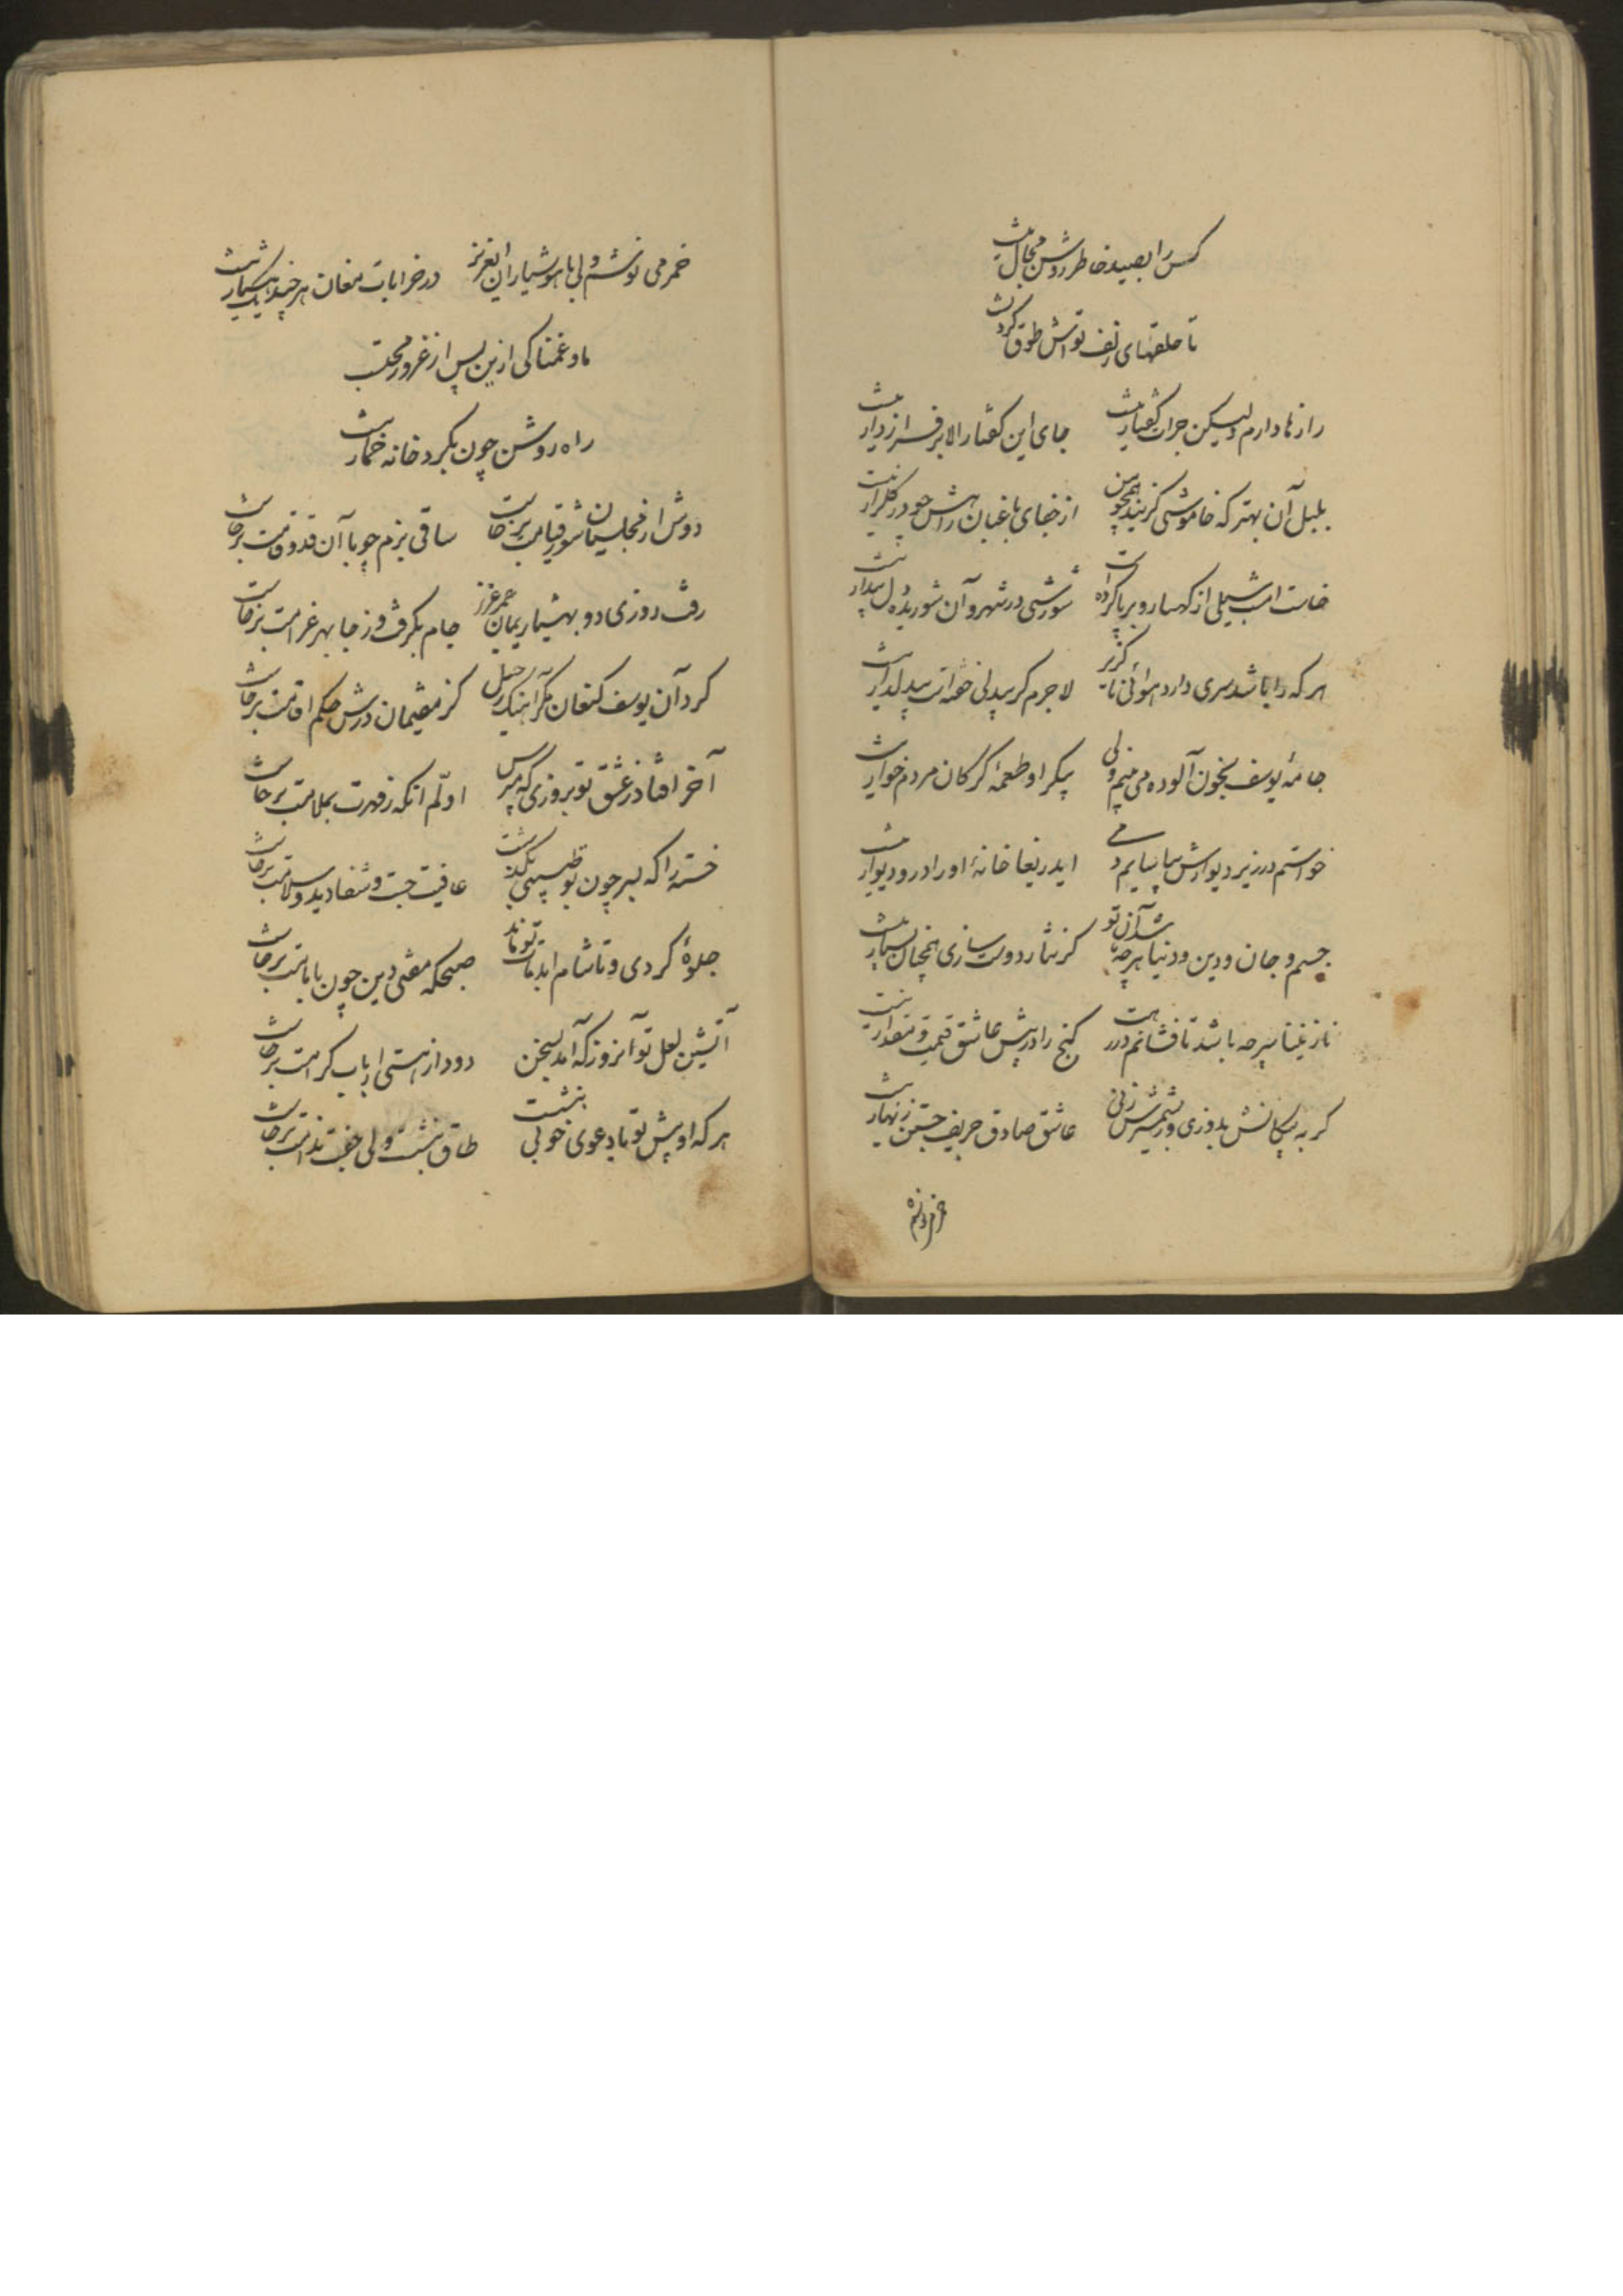 کس را بصید خاطر روشن مجال نیست
تا حلقهای زلف تواش طوق گردنست
رازها دارم ولیکن جرات گفتار نیست جای این گفتار الا بر فراز دار نیست
بلبل آن بهتر که خاموشی گزیند همچو من از جفای باغبان راهش چو در گلزار نیست
خاست امشب سیلی از کهسار و برپا کرده است شورشی در شهر و آن شوریده دل بیدار نیست
هر که را باشد سری دارد هوائی ناگزیر لاجرم گر بیدلی خفته است بیدلدار نیست
جامهٔ یوسف بخون آلوده می بینم ولی پیکر او طعمهٔ گرگان مردم خوار نیست
خواستم در زیر دیوارش بیاسایم دمی ایدریغا خانهٔ او را در و دیوار نیست
جسم و جان و دین و دنیا هرچه باشد آن تو گر نثار دوست سازی همچنان بسیار نیست
نازنینا سر چه باشد تا فشانم در رهت گنج را در پیش عاشق قیمت و مقدار نیست
گر به پیکانش بدوزی ور بشمشیرش زنی عاشق صادق حریف جستن زنهار نیست
خمر می نوشم
خمر می نوشم ولی با هوشیاران ایعزیز در خرابات مغان هر چند یک هشیار نیست
ما و غمناکی ازین پس از غرور محتسب
راه روشن چون بگرد خانه خمار نیست
دوش از مجلسیان شور قیامت برخاست ساقی بزم چو با آن قد و قامت برخاست
رفت روزی دو بهشیاریمان عمر عزیز جام بگرفت و ز جا بهر غرامت برخاست
کرد آن یوسف کنعان مگر آهنگ رحیل کز مقیمان درش حکم اقامت برخاست
آخر افتاد ز عشق تو بروزی که مپرس اولم آنکه ز مهرت بملامت برخاست
خسته را که بسر چون تو طبیبی بگذشت عافیت جست و شفا دید و سلامت برخاست
جلوهٔ کردی و تا شام ابد مات تو ماند صبحگه مفتی دین چون بامامت برخاست
آتشین لعل تو آنروز که آمد بسخن دود از هستی ارباب کرامت برخاست
هر که او پیش تو با دعوی خوبی بنشست طاق بنشست ولی جفت ندامت برخاست